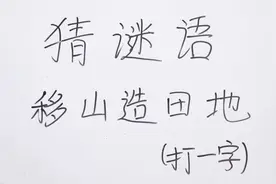 猜谜语
移山造田地
(打一字)